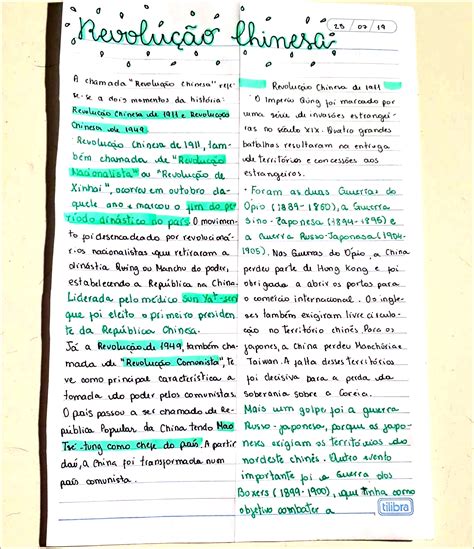 Revolução Chinesa
25 / 07 / 19
A chamada "Revolução Chinesa" refe-
se-se a dois momentos da história:
Revolução Chinesa de 1911 e Revolução
Chinesa de 1949.
Revolução Chinesa de 1911, tam-
bém chamada de "Revolução
Nacionalista" ou "Revolução de
Xinhai", ocorreu em outubro da-
quele ano e marcou o fim do pe-
ríodo dinástico no país. O movimen-
to foi desencadeado por revolucioná-
rios nacionalistas que retiraram a
dinástia Qing ou Manchu do poder,
estabelecendo a República na China.
Liderada pelo médico Sun Yat-sen
que foi eleito o primeiro presiden-
te da República Chinesa.
Já a Revolução de 1949, também cha-
mada de "Revolução Comunista", te-
ve como principal característica a
tomada do poder pelos comunistas.
O país passou a ser chamado de Re-
pública Popular da China tendo Mao
Tsé-tung como chefe do país. A partir
daí, a China foi transformada num
país comunista.
Revolução Chinesa de 1911
· O Império Qing foi marcado por
uma série de invasões estrangei-
ras no século XIX. Quatro grandes
batalhas resultaram na entrega
de territórios e concessões aos
estrangeiros.
· Foram as duas Guerras do
Ópio (1839-1860), a Guerra
Sino-Japonesa (1894-1895) e
a Guerra Russo-Japonesa (1904-
1905). Nas Guerras do Ópio, a China
perdeu parte de Hong Kong e foi
obrigada a abrir os portos para
o comércio internacional. Os ingle-
ses também exigiram livre circula-
ção no território chinês. Para os
japoneses, a China perdeu Manchúria e
Taiwan. A falta desses territórios
foi decisiva para a perda da
soberania sobre a Coreia.
Mais um golpe foi a guerra
Russo-japonesa, porque os japo-
neses exigiam os territórios do
nordeste chinês. Outro evento
importante foi a Guerra dos
Boxers (1899-1900), que tinha como
objetivo combater a
tilibra